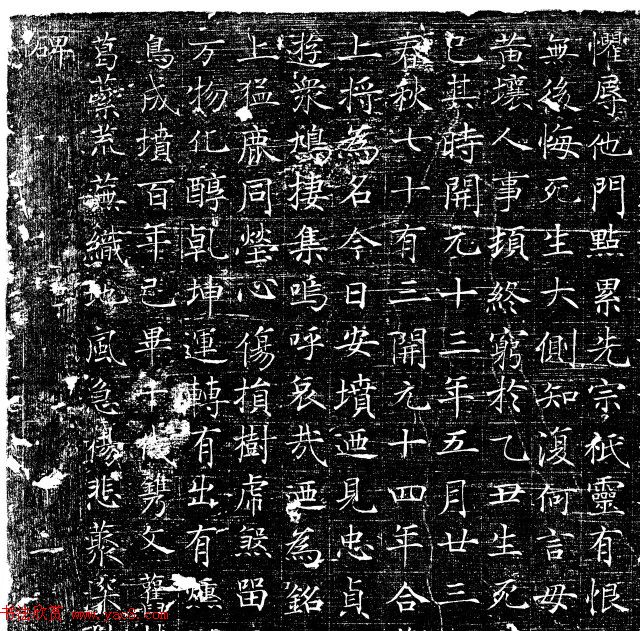 懼辱他門點累先宗祇靈有恨
無後悔死生大側知復何言毋
黄壤人事頓終窮於乙丑生死
已其時開元十三年五月廿三
春秋七十有三開元十四年合
上將為名今日安墳迺見忠貞
遊衆鳩捿集嗚呼哀哉迺為銘
上猛鹿同塋心傷損樹虎煞留
万物化醇乹坤運轉有出有
鳥成墳百年已畢十 鐫文
葛藟荒蕪織 風急楊悲
碑
www.yac8.com